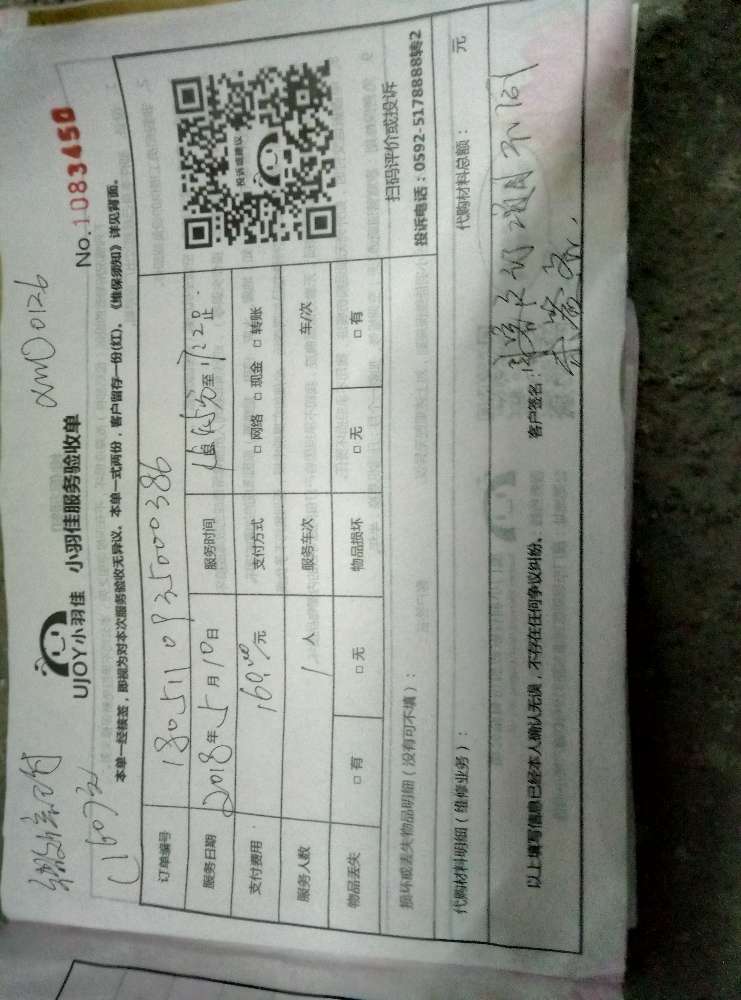 微信已付
(160元)
xmD0126
UJOY小羽佳 小羽佳服务验收单
No.1083450
本单一经接签，即视为对本次服务验收无异议。本单一式两份，客户留存一份(红)。《维保须知》详见背面。
订单编号 1805110935000386
服务日期 2018年5月10日 服务时间 至17:20止
支付费用 160.00元 支付方式 □网络 □现金 □转账
服务人数 1人 服务车次 车/次
物品丢失 □有 □无 物品损坏 □无 □有
投诉或建议
扫码评价或投诉
投诉电话：0592-5178888转2
损坏或丢失物品明细（没有可不填）：
代购材料明细（维修业务）： 代购材料总额： 元
以上填写信息已经本人确认无误，不存在任何争议纠纷、 客户签名：